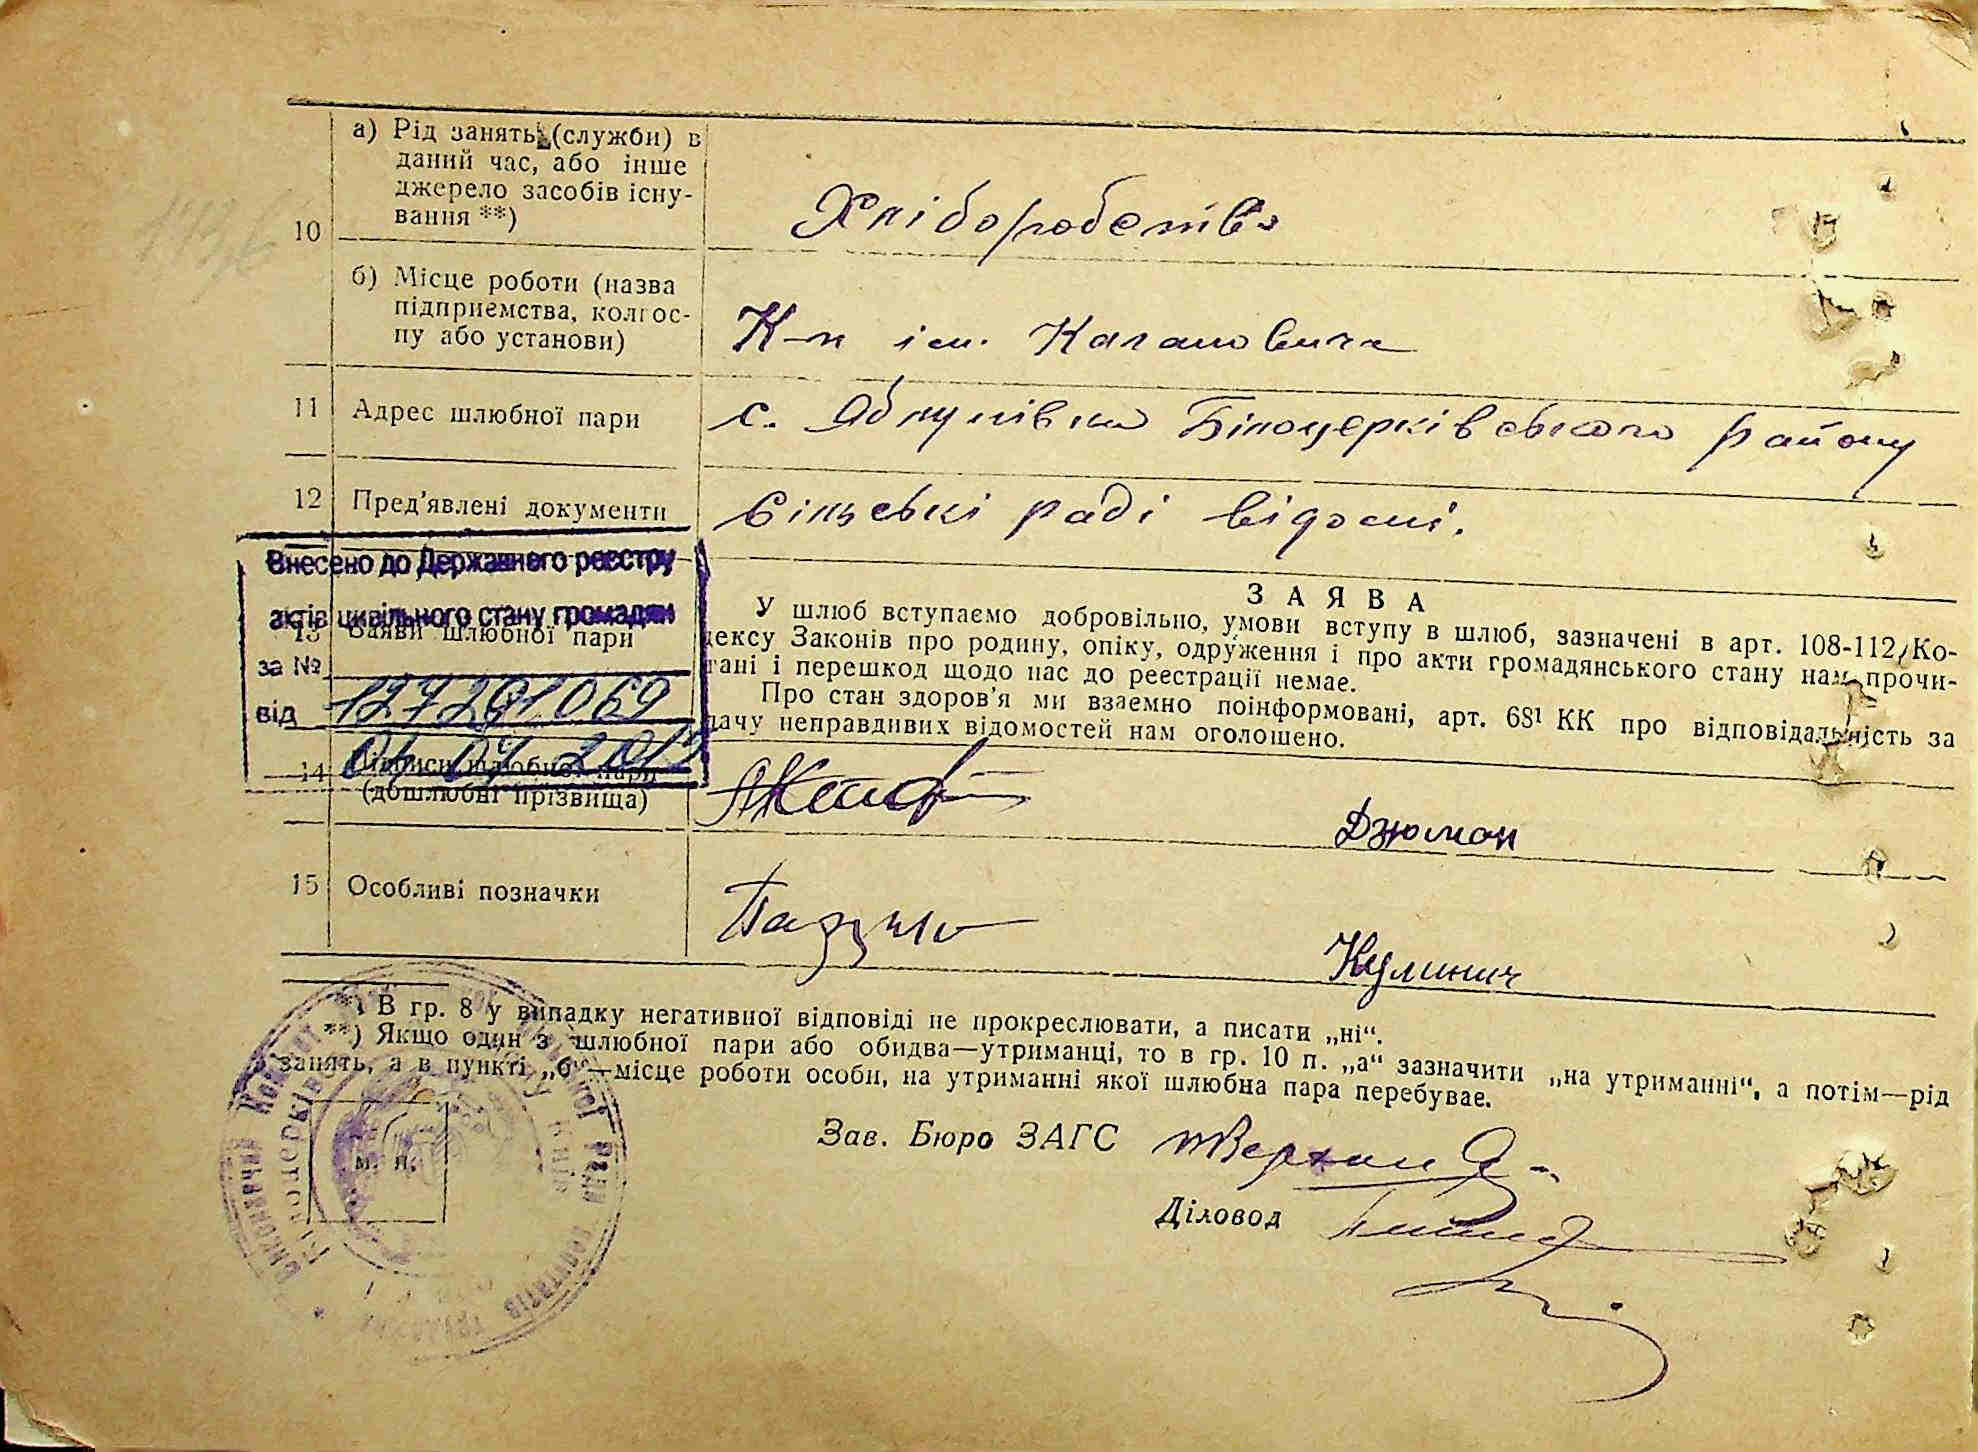 10
а) Рід занять (служби) в
даний час, або інше
джерело засобів існу-
вання **)
Хліборобство
б) Місце роботи (назва
підприємства, колгос-
пу або установи)
К-п ім. Кагановича
11
Адрес шлюбної пари
с. Яблунівка Білоцерківського району
12
Пред'явлені документи
Сільській раді відомі.
Внесено до Державного реєстру
актів цивільного стану громадян
за №
127291069
від
13
Заяви шлюбної пари
ЗАЯВА
У шлюб вступаємо добровільно, умови вступу в шлюб, зазначені в арт. 108-112, Ко-
дексу Законів про родину, опіку, одруження і про акти громадянського стану нам прочи-
тані і перешкод щодо нас до реєстрації немає.
Про стан здоров'я ми взаємно поінформовані, арт. 68¹ КК про відповідальність за
дачу неправдивих відомостей нам оголошено.
14
Підписи шлюбної пари
(дошлюбні прізвища)
Дзюман
15
Особливі позначки
Кулинич
*) В гр. 8 у випадку негативної відповіді не прокреслювати, а писати „ні“.
**) Якщо один з шлюбної пари або обидва—утриманці, то в гр. 10 п. „а“ зазначити „на утриманні“, а потім—рід
занять, а в пункті „б“—місце роботи особи, на утриманні якої шлюбна пара перебуває.
м. п.
Зав. Бюро ЗАГС
Діловод